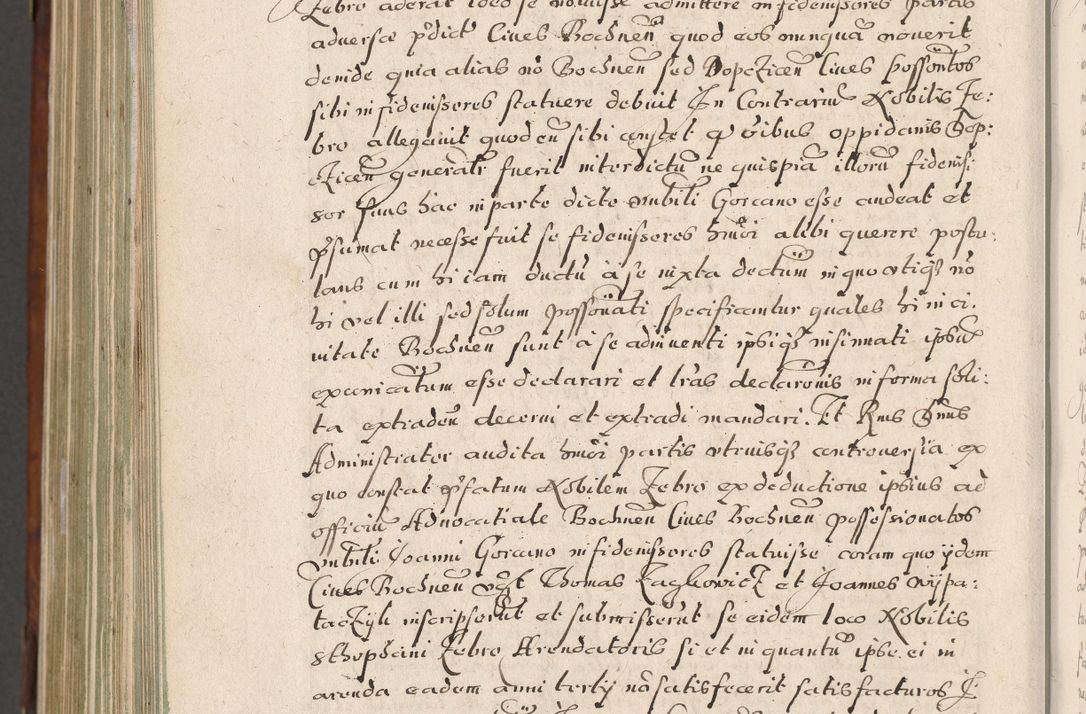 Zebro aderat ideo se noluisse admittere in fideiussores partis
adversæ pdict Cives Bochnen quod eos nunquã noverit
deinde quia alias nõ Bochnen sed Dopczicen Cives possontos
sibi in fideiussores statuere debuit In Contrariũ Nobilis Ze:
bro allegavit quod cũ sibi constet q oibus oppidanis Dop:
czicen generalr fuerit interdictũ ne quispiã illorũ fideius:
sor suus hac in parte dicto nobili Gorcano esse audeat et
psumat necesse fuit se fideiussores hmoi alibi querere postu:
lans cum hi iam ductũ à se iuxta dectum in quo utiq nõ
hi vel illi sed solum possonati specificantur quales hi in ci:
vitate Bochnen sunt à se adinventi ipsiq insinuati ipsum
exonicatum esse declarari et lras declaronis in forma soli:
ta extraden decerni et extradi mandari. Et Rmus Dnus
Administrator audita hmoi partis utriusq controversia ex
quo constat pfatum Nobilem Zebro ex deductione ipsius ad
officiũ Advocatiale Bochnen Cives Bochnen possessionatos
nobili Joanni Gorcano in fideiussores statuisse coram quo ijdem
Cives Bochnen Thomas et Joannes Wypa:
taczyk inscripserũt et submisserũt se eidem loco Nobilis
Sthephani Zebro Arendatoris si et in quantũ ipse ei in
arenda eadem anni tertij nõ satisfecerit satisfacturos